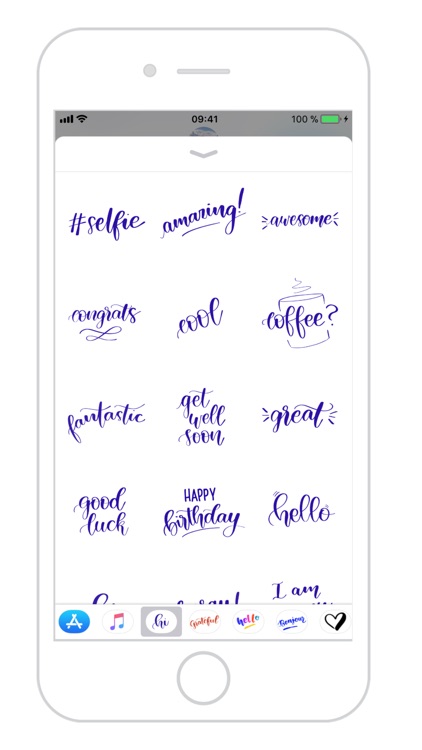 09:41
100 %
#selfie
amazing!
awesome
congrats
cool
coffee?
fantastic
get
well
soon
great
good
luck
HAPPY
birthday
hello
I am
hi
grateful
hello
Bonjour